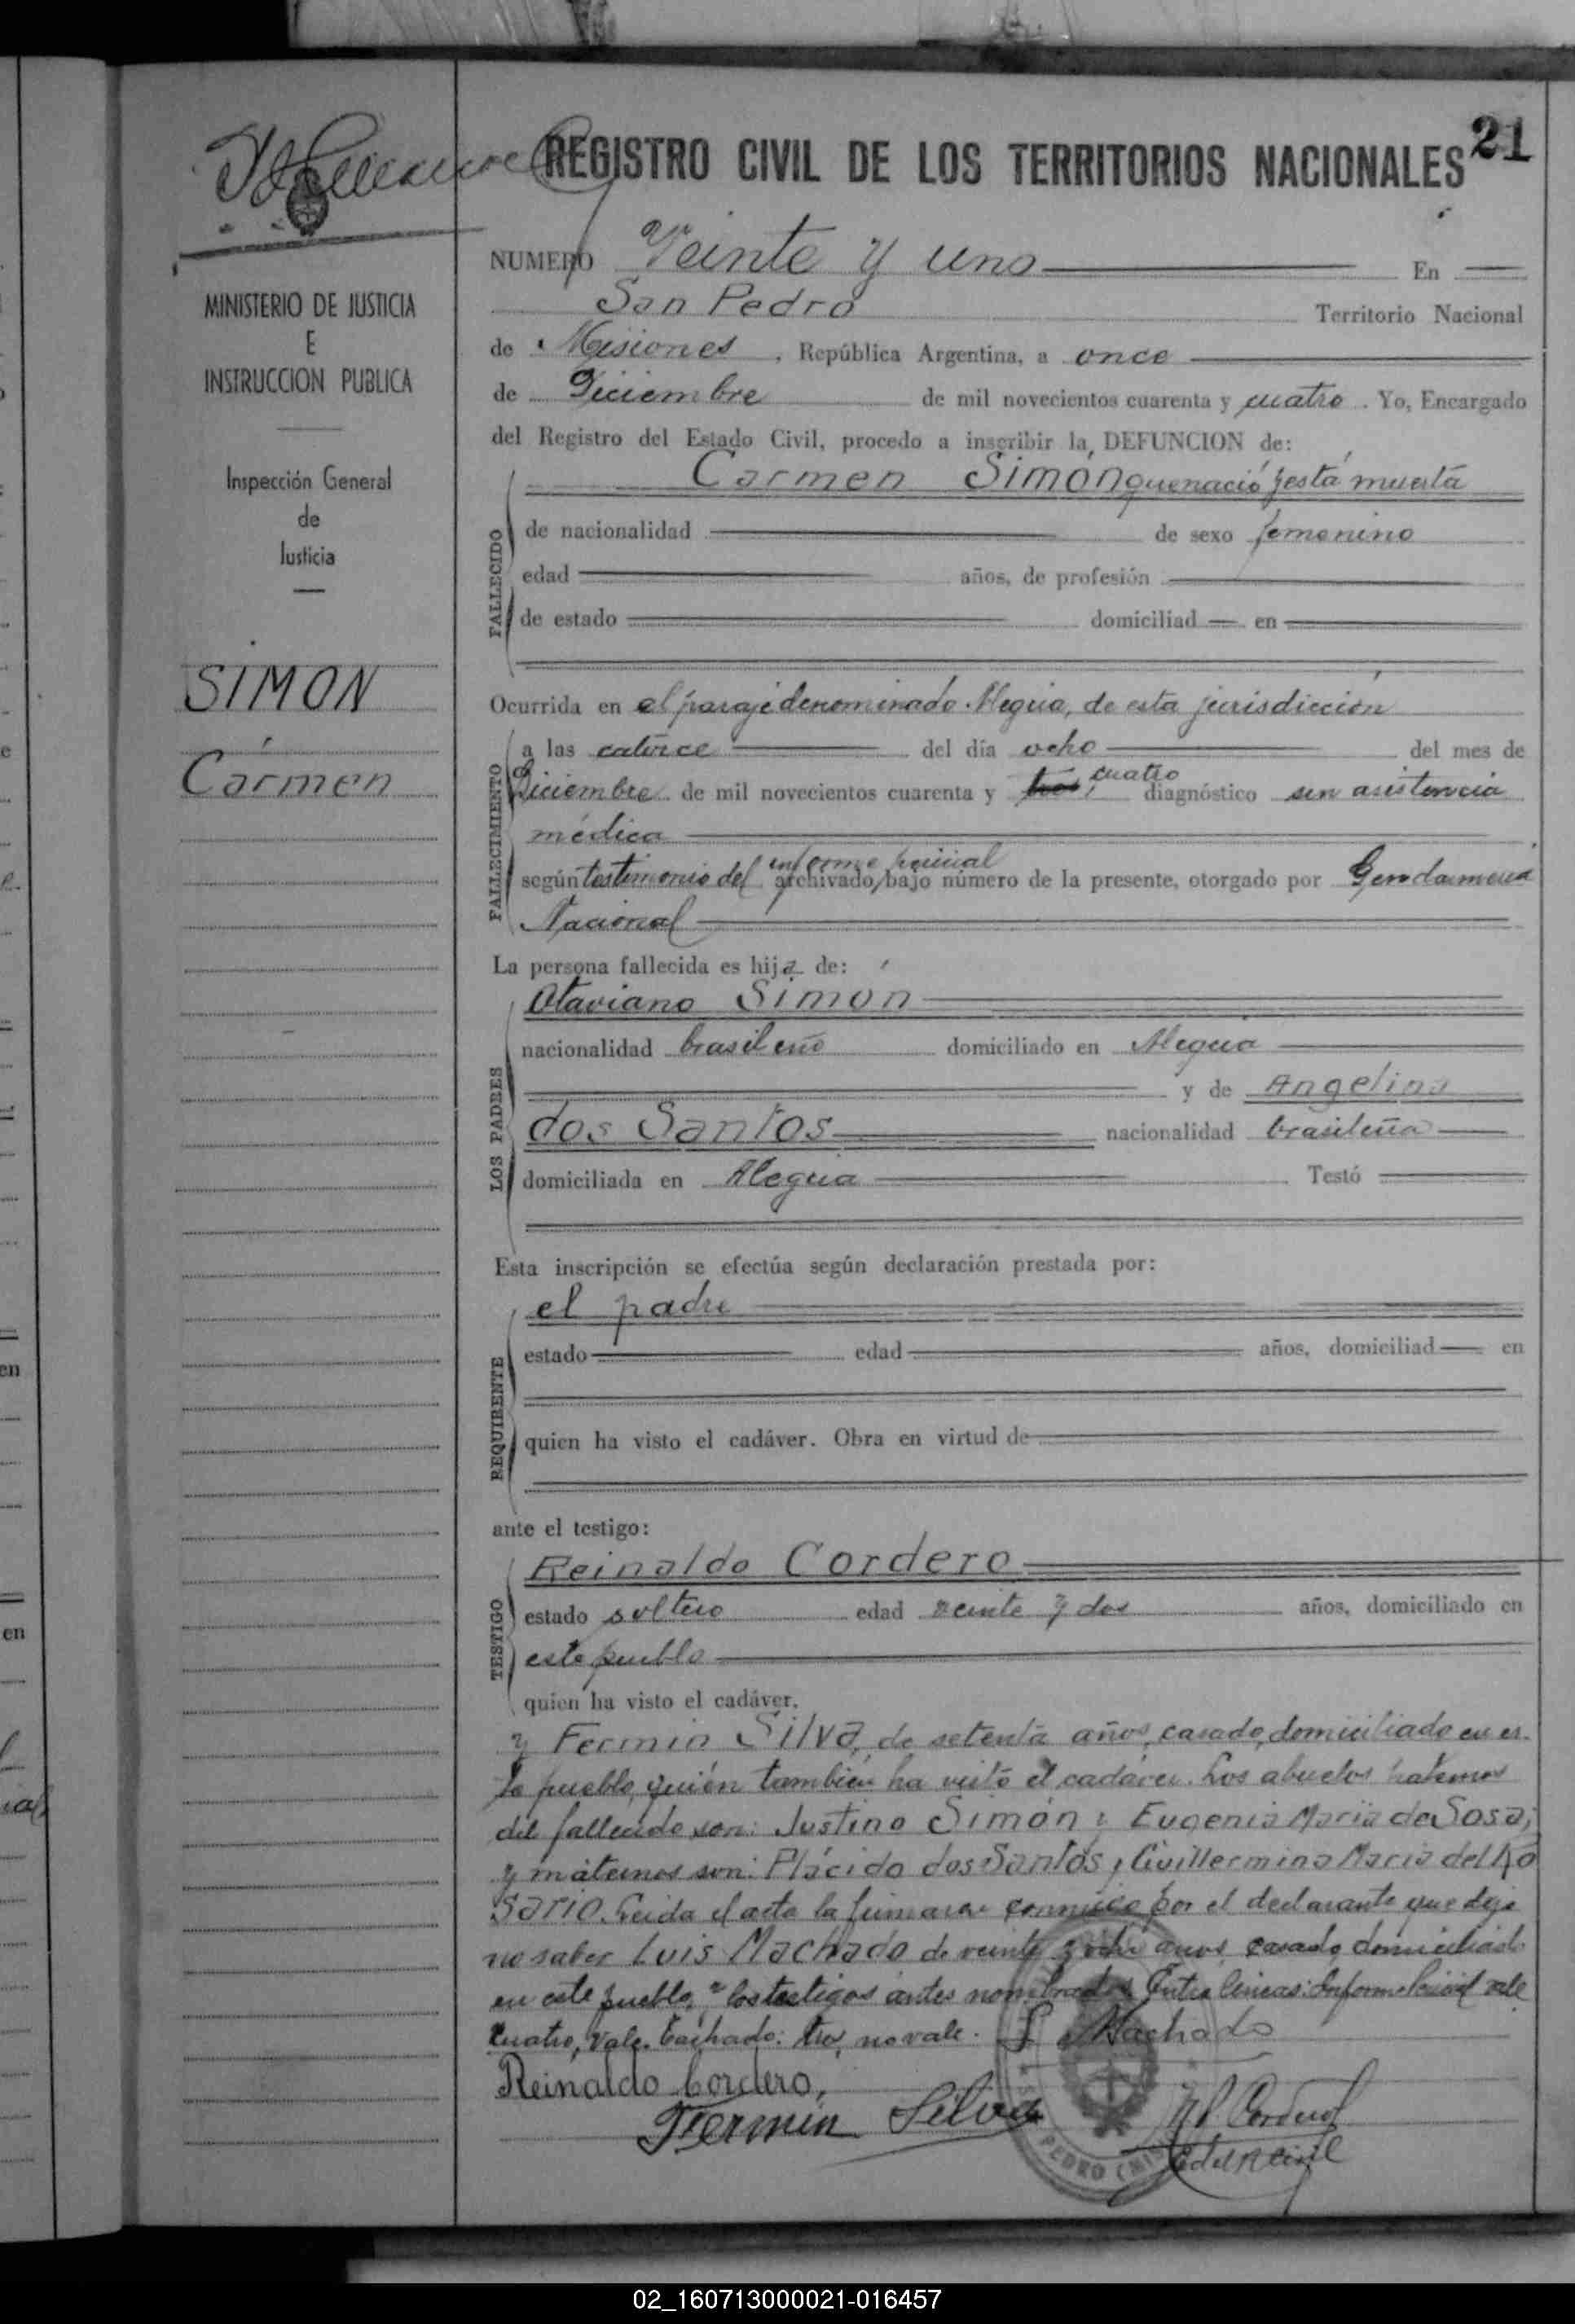 21
REGISTRO CIVIL DE LOS TERRITORIOS NACIONALES
MINISTERIO DE JUSTICIA
E
INSTRUCCION PUBLICA
Inspección General
de
Justicia
SIMÓN
Cármen
NUMERO Veinte y uno En
San Pedro Territorio Nacional
de Misiones, República Argentina, a once
de Diciembre de mil novecientos cuarenta y cuatro. Yo, Encargado
del Registro del Estado Civil, procedo a inscribir la DEFUNCION de:
Carmen Simón que nació y está muerta
FALLECIDO
de nacionalidad de sexo femenino
edad años, de profesión
de estado domiciliad en
Ocurrida en el paraje denominado Alegria, de esta jurisdicción
FALLECIMIENTO
a las catorce del día ocho del mes de
Diciembre de mil novecientos cuarenta y tres, cuatro diagnóstico sin asistencia
médica
según testimonio del informe policial archivado, bajo número de la presente, otorgado por Gendarmeria
Nacional
La persona fallecida es hija de:
LOS PADRES
Otaviano Simón
nacionalidad brasileño domiciliado en Alegria
y de Angelina
dos Santos nacionalidad brasileña
domiciliada en Alegria Testó
Esta inscripción se efectúa según declaración prestada por:
REQUIRENTE
el padre
estado edad años, domiciliad en
quien ha visto el cadáver. Obra en virtud de
ante el testigo:
TESTIGO
Reinaldo Cordero
estado soltero edad veinte y dos años, domiciliado en
este pueblo
quien ha visto el cadáver.
y Fermin Silva, de setenta años, casado, domiciliado en es-
te pueblo, quién tambien ha visto el cadáver. Los abuelos paternos
del fallecido son: Justino Simón y Eugenia Maria de Sosa;
y maternos son: Plácido dos Santos y Guillermina Maria del Ro
sario. Leida el acta la firmaron conmigo por el declarante que dijo
no saber Luis Machado de veinte y ocho años, casado, domiciliado
en este pueblo, y los testigos antes nombrados. Entre lineas: Informe Policial vale
cuatro, vale. Tachado: tres, no vale. L Machado
Reinaldo Cordero,
Fermin Silva
E. del R. Civil
PEDRO (MIS
02_160713000021-016457